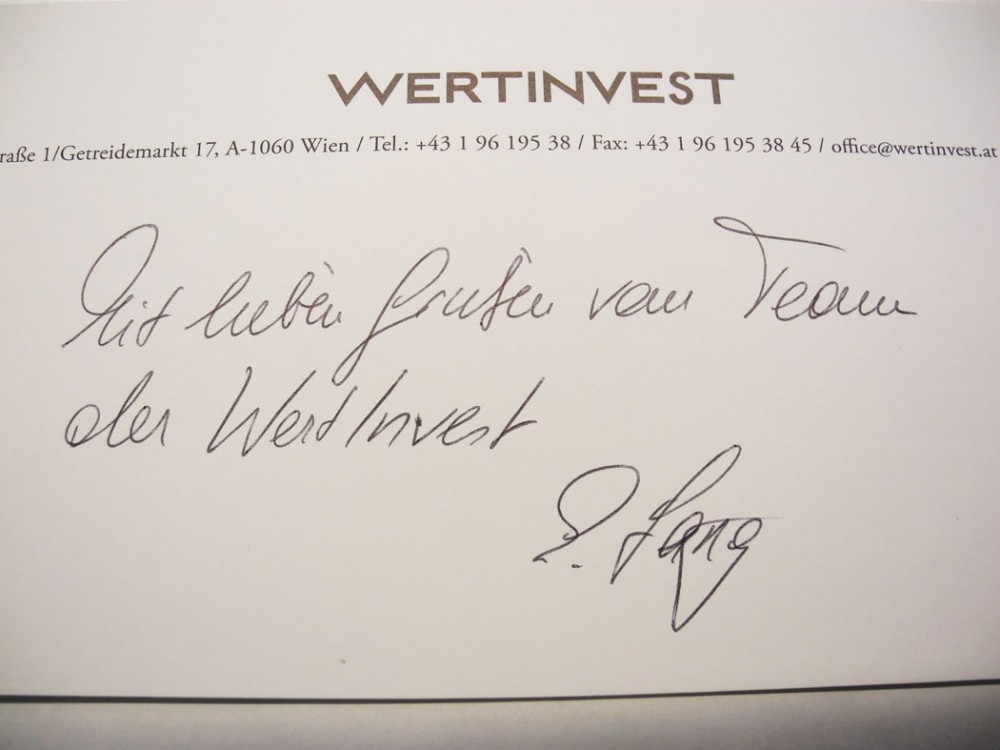 WERTINVEST
raße 1/Getreidemarkt 17, A-1060 Wien / Tel.: +43 1 96 195 38 / Fax: +43 1 96 195 38 45 / office@wertinvest.at
Mit lieben Grüßen vom Team
der WertInvest
Lang